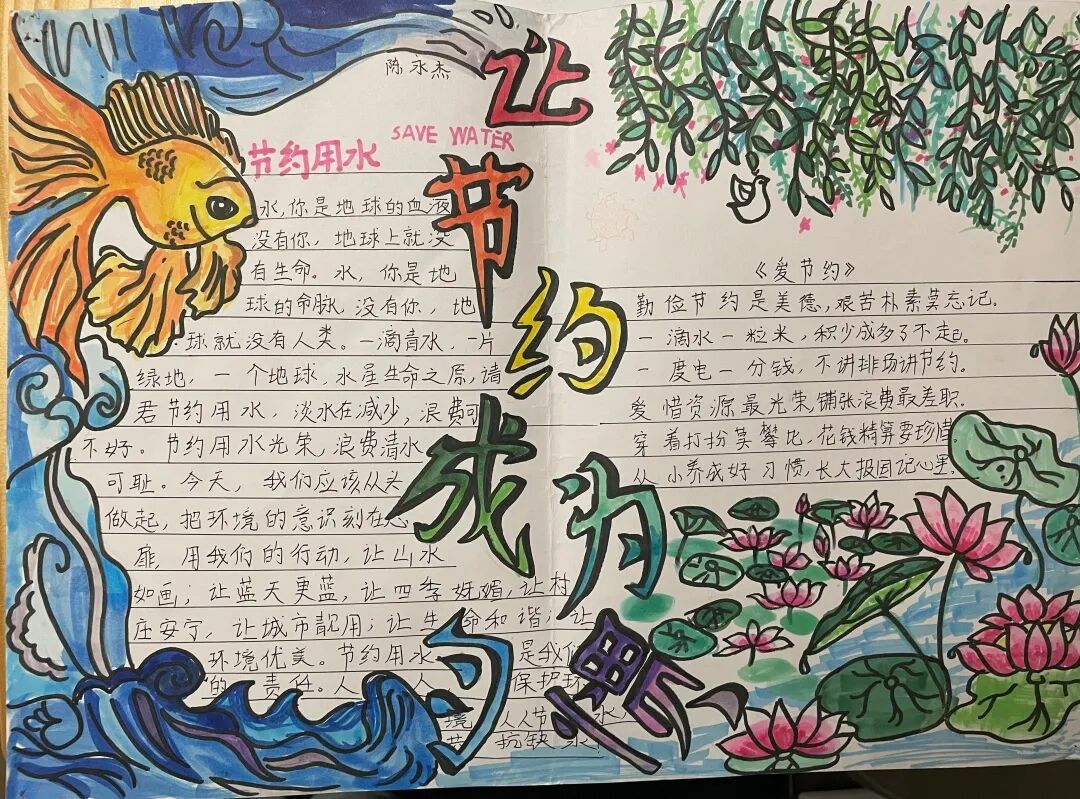 陈永杰
让节约成为习惯
节约用水 SAVE WATER
水，你是地球的血液
没有你，地球上就没
有生命。水，你是地
球的命脉，没有你，地
球就没有人类。一滴青水，一片
绿地，一个地球，水是生命之原，请
君节约用水，淡水在减少，浪费可
不好。节约用水光荣，浪费清水
可耻。今天，我们应该从头
做起，把环境的意识刻在心
扉，用我们的行动，让山水
如画；让蓝天更蓝，让四季妩媚，让村
庄安宁，让城市靓丽；让生命和谐；让
环境优美。节约用水 是我们
的责任。人 人 保护环
境 人人节 水，
抗缺水！
《爱节约》
勤俭节约是美德，艰苦朴素莫忘记。
一滴水一粒米，积少成多了不起。
一度电一分钱，不讲排场讲节约。
爱惜资源最光荣，铺张浪费最差职。
穿着打扮莫攀比，花钱精算要珍惜。
从小养成好习惯，长大报国记心里。